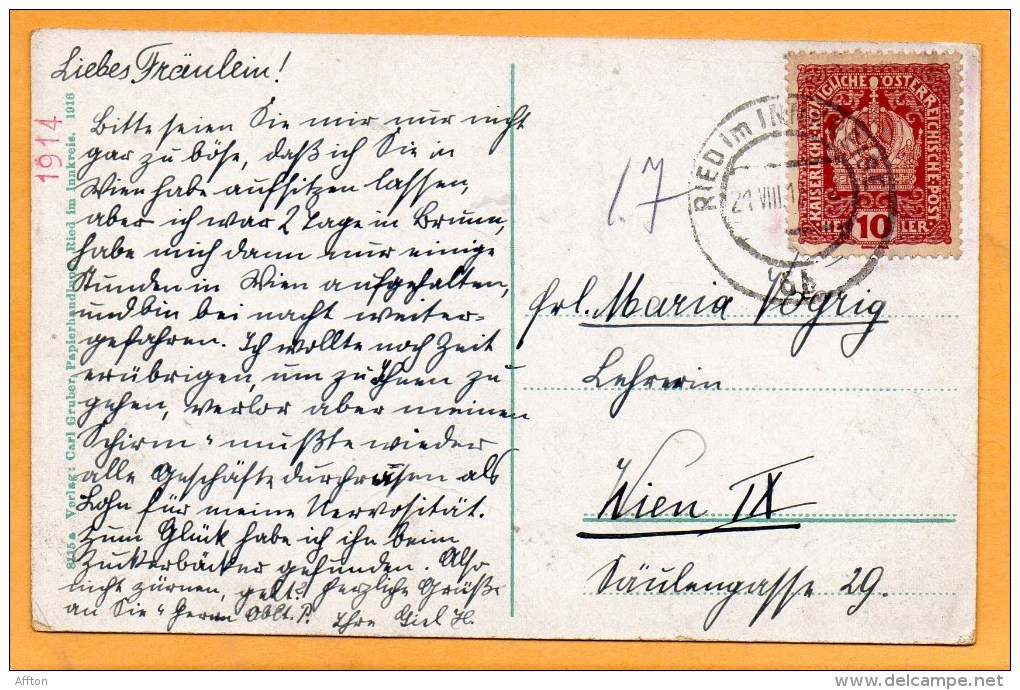 Liebes Fräulein!
Bitte seien Sie mir nur nicht
gar zu böse, daß ich Sie in
Wien habe aufsitzen lassen,
aber ich war 2 Tage in Brünn,
habe mich dann nur einige
Stunden in Wien aufgehalten,
und bin bei Nacht weiter-
gefahren. Ich wollte noch Zeit
erübrigen, um zu Ihnen zu
gehen, verlor aber meinen
Schirm u mußte wieder
alle Geschäfte durchrasen als
Lohn für meine Nervosität.
Zum Glück habe ich ihn beim
Zuckerbäcker gefunden. Also
nicht zürnen, gelt? Herzliche Grüße
an Sie u Herrn Oblt. P. Ihre Gisl H.
1914
8115a Verlag: Carl Gruber, Papierhandlung, Ried im Innkreis. 1916
17
RIED im INNKREISE
21 VIII 1
KAISERLICHE KÖNIGLICHE ÖSTERREICHISCHE POST
HELLER
10
Frl. Maria Vogrig
Lehrerin
Wien IX
Säulengasse 29.
Affton
delcampe.net